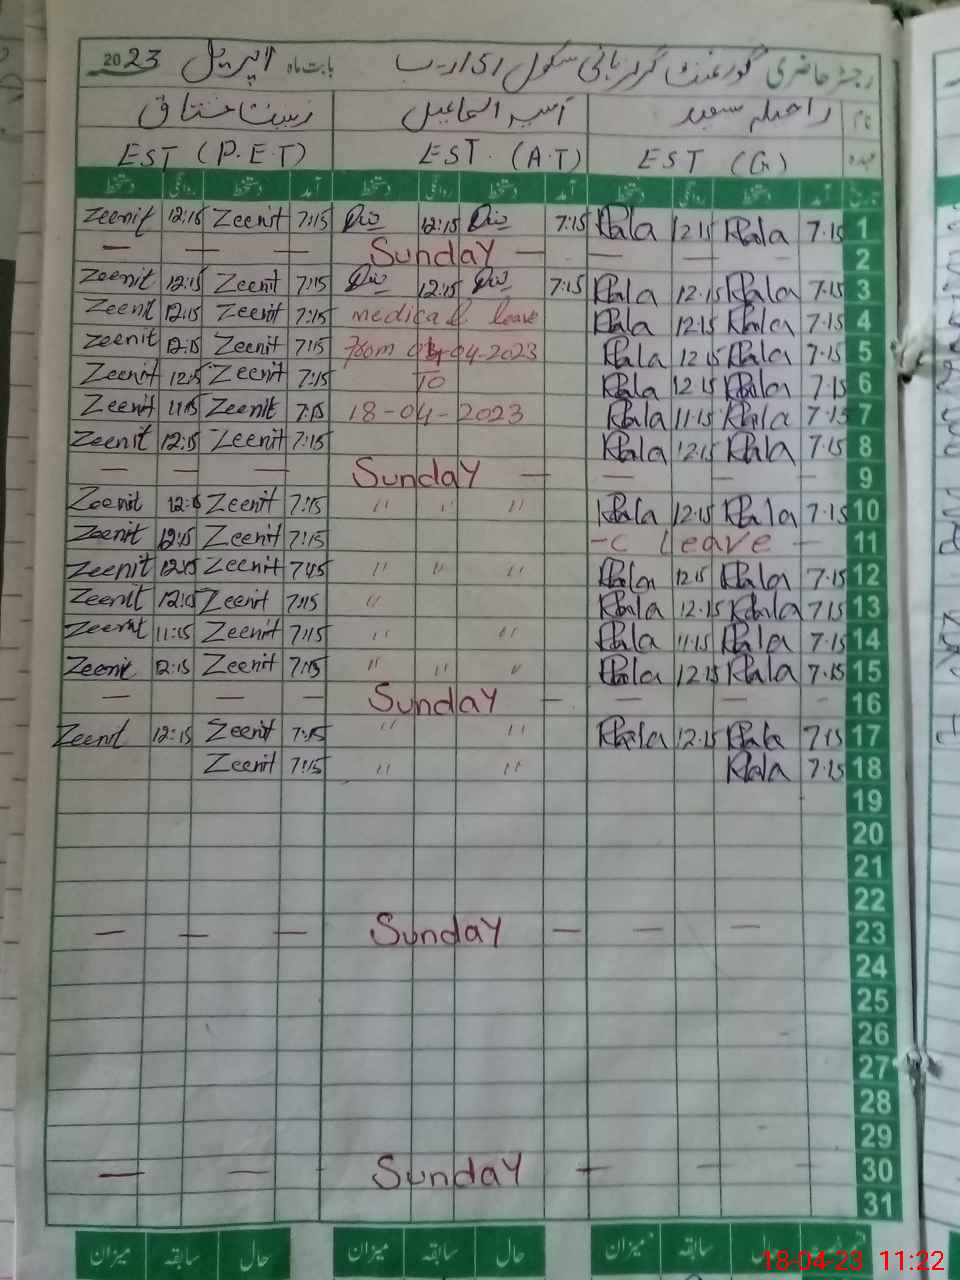 رجسٹر حاضری گورنمنٹ گرلز ہائی سکول ای ار ب بابت ماہ اپریل 2023
نام راحیلہ سعید آسیہ اسماعیل زینت مشتاق
عہدہ EST (G) EST. (A.T) EST (P.E.T)
تاریخ آمد دستخط روانگی دستخط آمد دستخط روانگی دستخط آمد دستخط روانگی دستخط
Zeenit 12:15 Zeenit 7:15 12:15 7:15 12:15 7.15 1
— — — Sunday — — — - 2
Zeenit 12:15 Zeenit 7:15 12:15 7:15 12.15 7.15 3
Zeenit 12:15 Zeenit 7:15 medical leave 12.15 7.15 4
Zeenit 12:15 Zeenit 7:15 from 04-04-2023 12.15 7.15 5
Zeenit 12:15 Zeenit 7:15 To 12.15 7.15 6
Zeenit 11:15 Zeenit 7:15 18-04-2023 11.15 7.15 7
Zeenit 12:15 Zeenit 7:15 12.15 7.15 8
— — — Sunday — — — — 9
Zeenit 12:15 Zeenit 7:15 " " " 12.15 7.15 10
Zeenit 12:15 Zeenit 7:15 -C Leave - 11
Zeenit 12:15 Zeenit 7:15 " " " 12.15 7.15 12
Zeenit 12:15 Zeenit 7:15 " 12.15 7.15 13
Zeenit 11:15 Zeenit 7:15 " " 11.15 7.15 14
Zeenit 12:15 Zeenit 7:15 " " " 12.15 7.15 15
— — — Sunday — — — 16
Zeenit 12:15 Zeenit 7:15 " " 12.15 7.15 17
Zeenit 7:15 " " 7.15 18
19
20
21
22
— — — Sunday — — — 23
24
25
26
27
28
29
— — Sunday — — 30
31
حال سابقہ میزان حال سابقہ میزان حال سابقہ میزان
18-04-23 11:22